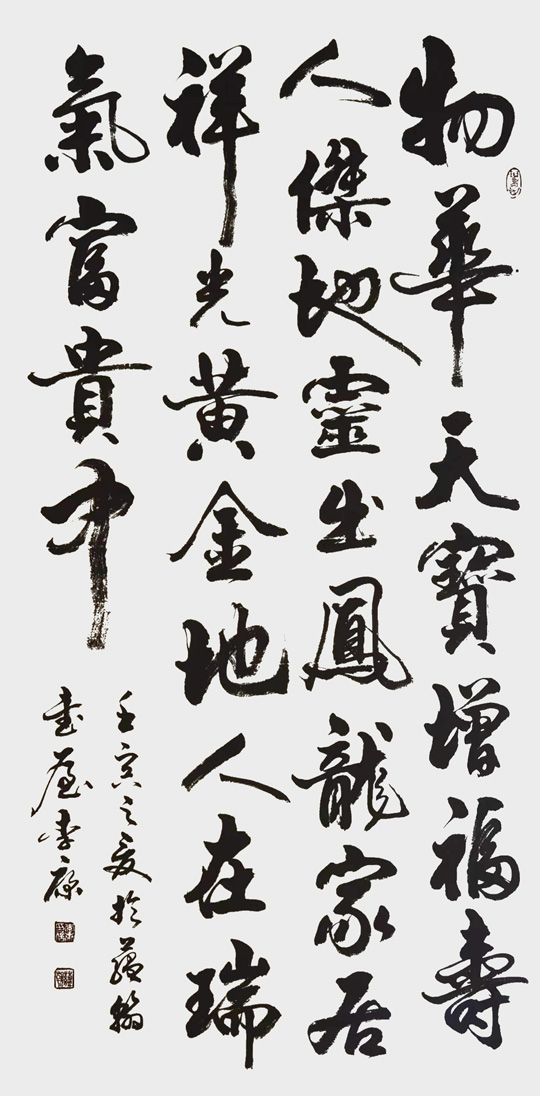 物華天寶增福壽
人傑地靈出鳳龍家居
祥光黃金地人在瑞
氣富貴中
壬寅之夏於蘊翰
書屋李康